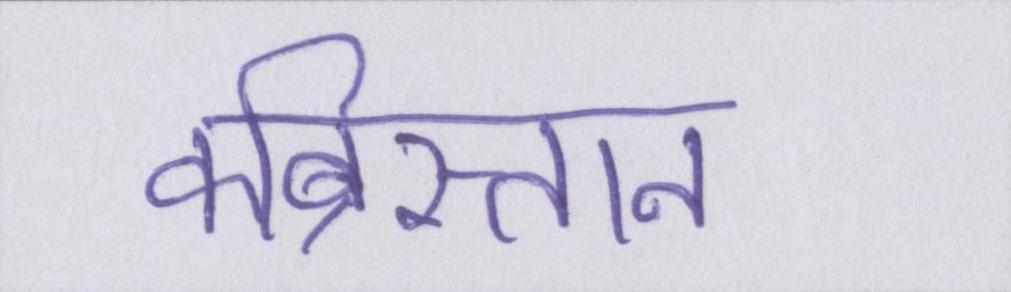 कब्रिस्तान